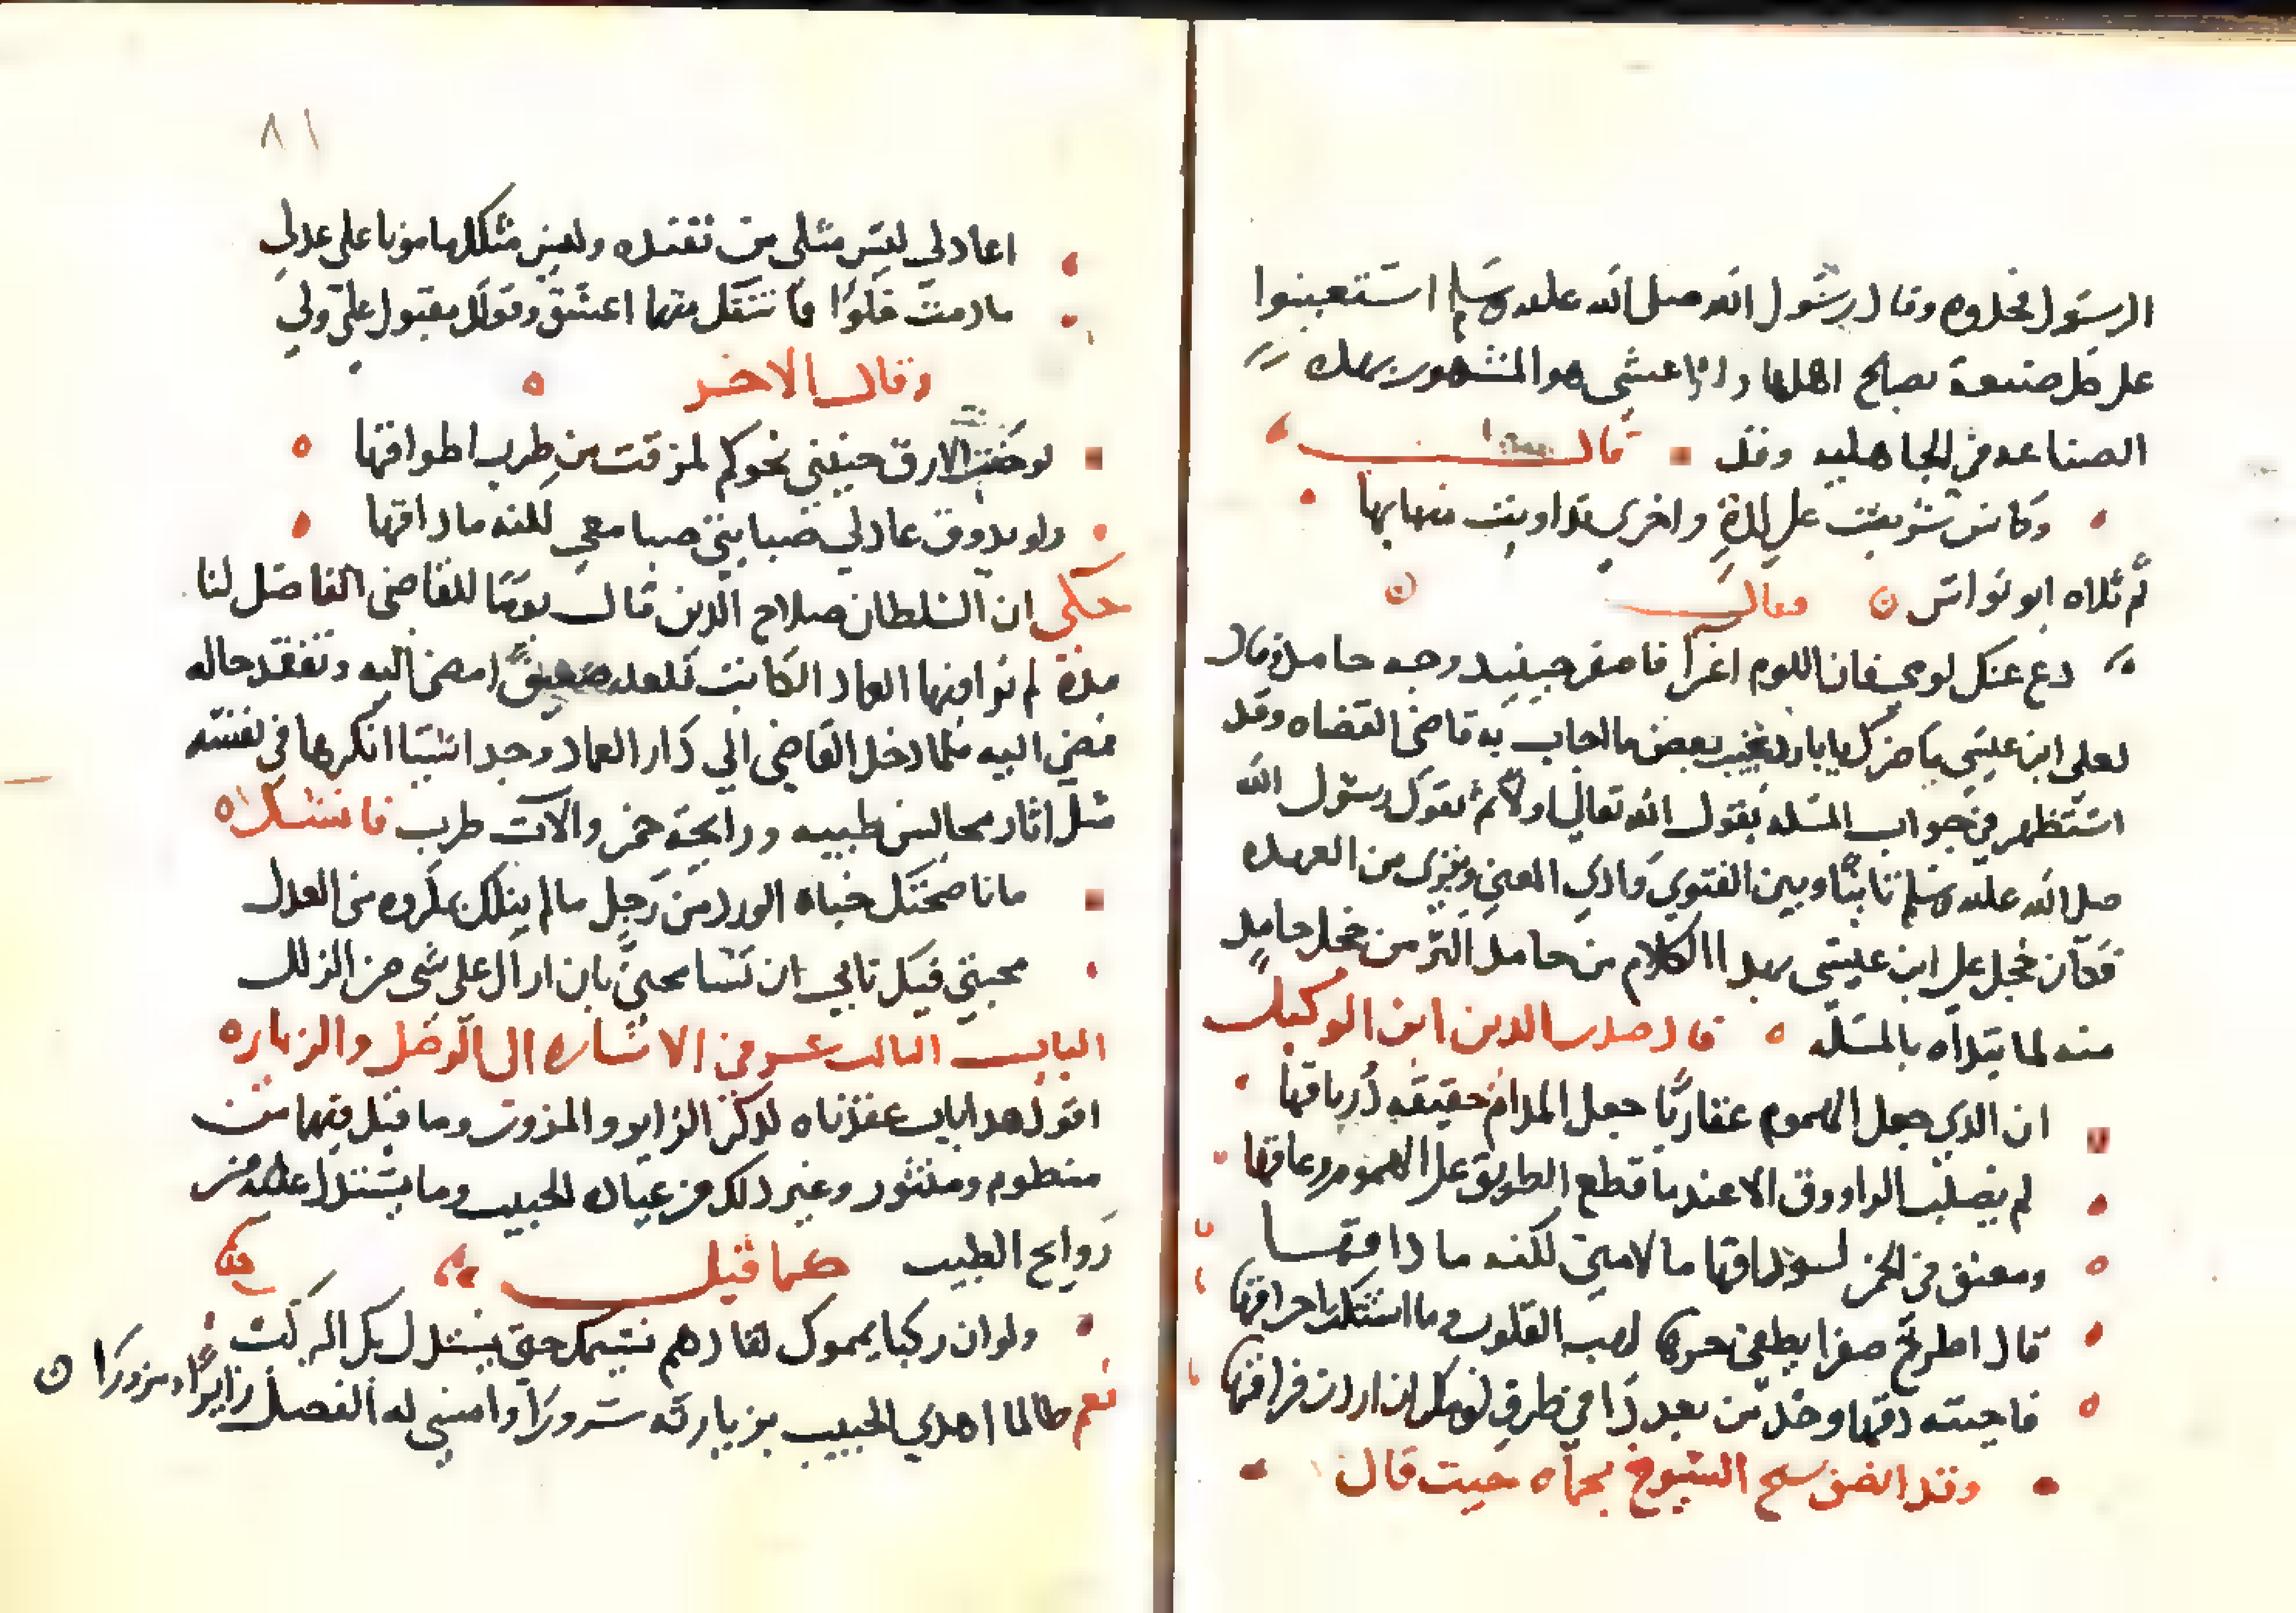 الرسول فخذوه وقال رسول الله صلى الله عليه وسلم استعينوا
على كل صنيعة بصالح اهلها والاعشى هو المشهور بهذه
الصناعة في الجاهلية وقد قال
وكاس شربت على لذة واخرى تداويت منها بها
ثم تلاه ابو نواس فقال
دع عنك لومي فان اللوم اغرا فاصفر حينيد وجه حامد وقال
لعلي ابن عيسى ما ضرك يا بارد تجيب بعض ما اجاب به قاضي القضاه وقد
استظهر في جواب المسله بقول الله تعالى اولا ثم بقول رسول الله
صلى الله عليه وسلم ثانيا وبين الفتوى وادى المعنى وتبرى من العهده
فكان خجل علي ابن عيسى بهذا الكلام من حامد اكثر من خجل حامد
منه لما ابتداه بالمسله قال صدر الدين ابن الوكيل
ان الذي جعل الهموم عقاربا جعل المدام حقيقة درياقها
لم يصلب الراووق الا عندما قطع الطريق على الهموم وعاقها
ومعنف في الخمر لو ذاقها ما لامني لكنه ما ذاقها
قال اطرح صفرا يطفي حرها لهب القلوب وما اشتكت احراقها
فاجبته دقها وخذ من بعد ذا في طرق لومك ان اردت فراقها
وقد انصف شيخ الشيوخ بحماه حيث قال
٨١
اعاذلي ليس مثلي من تفنده وليس مثلك مامونا على عذلي
ما دمت خلوا فما تنفك متهما اعشق وقولك مقبول علي ولي
وقال الاخر
لو حنت الارق حنيني نحوكم لمزقت من طرب اطواقها
ولو يذوق عاذلي صبابتي صبا معي لكنه ما ذاقها
حكى ان السلطان صلاح الدين قال يوما للقاضي الفاضل لنا
مدة لم نر فيها العماد الكاتب فلعله ضعيف امض اليه وتفقد حاله
فمضى اليه فلما دخل القاضي الى دار العماد وجد اشيا انكرها في نفسه
مثل اثار مجالس طيبه ورايحة خمر والآت طرب فانشده
ما ناصحتك خبايا الود من رجل ما لم ينلك بمكروه من العذل
محبتي فيك تابى ان تسامحني بان اراك على شي من الزلل
الباب الثالث عشر في الاشاره الى الوصل والزياره
اقول هذا باب عقدناه لذكر الزاير والمزور وما قيل فيهما من
منظوم ومنثور وغير ذلك من عيادة الحبيب وما يستدل عليه من
روايح الطيب كما قيل
ولو ان ركبا يمموك لقادهم نسيمك حتى يستدل بك الركب
نعم طالما اهدى الحبيب بزيارته سرورا وامسى له الفضل زايرا ومزورا